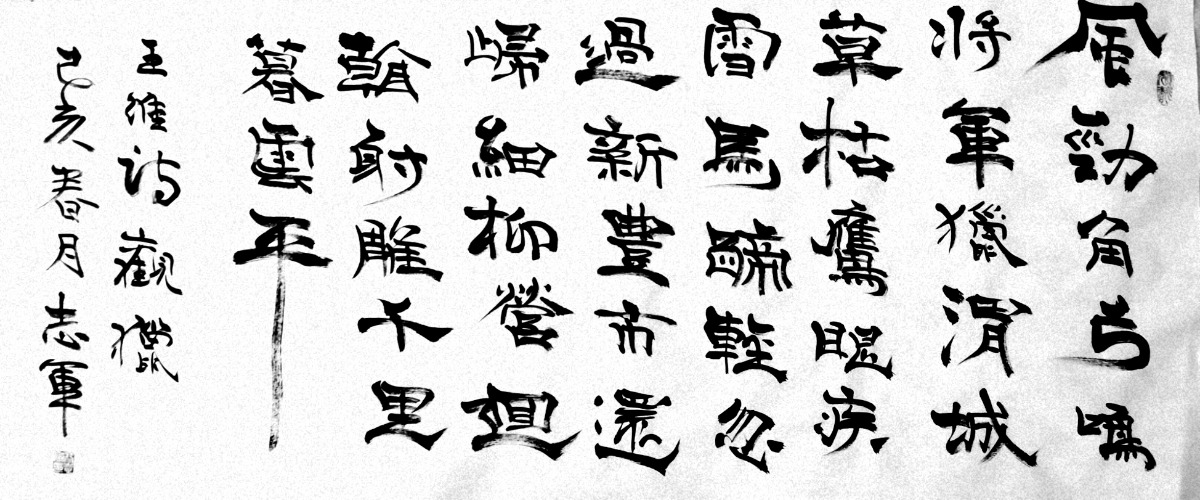 風勁角弓鳴
將軍獵渭城
草枯鷹眼疾
雪馬蹄輕忽
過新豐市還
歸細柳營迴
看射雕千里
暮雲平
王維詩觀獵
己亥春月志軍